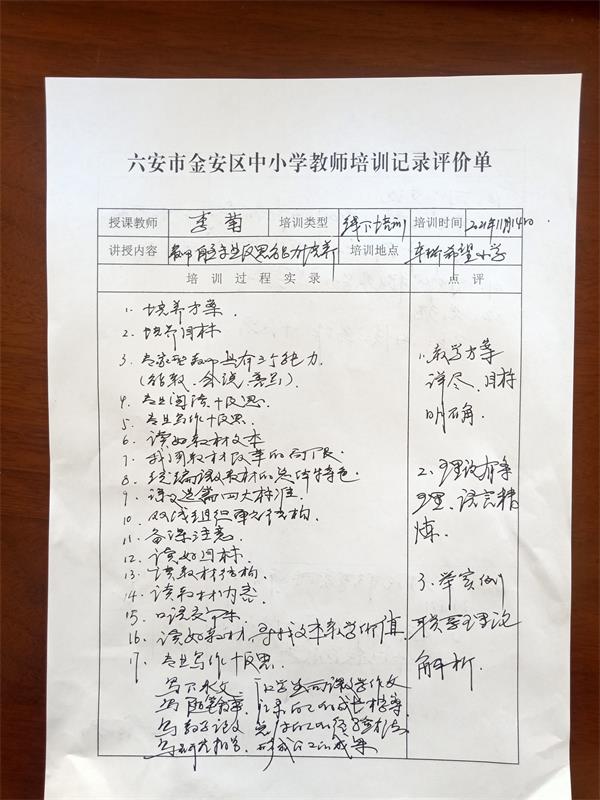 六安市金安区中小学教师培训记录评价单
授课教师 李菊 培训类型 线下培训 培训时间 2021年11月14日
讲授内容 教师自主学生反思能力培养 培训地点 希望小学
培训过程实录 点评
1. 培养方案.
2. 培养目标
3. 专家型教师具有三个能力
(能教、会说、善写).
4. 专业阅读+反思.
5. 专业写作+反思
6. 读好教材文本
7. 我国教材改革的
8. 统编语文教材的总体特色
9. 课文选篇四大标准.
10. 双线组织单元结构.
11. 备课注意.
12. 读好目标.
13. 读教材结构.
14. 读教材内容
15. 口语交际
16. 读好教材，寻找文本教学价值
17. 专业写作+反思.
写下水文，
写随笔叙事，记录自己的成长
写教学论文
写研究报告，形成自己的成果
1. 教学方案
详尽、目标
明确.
2. 理论有条
理、语言精
炼.
3. 举实例
联系理论
解析.